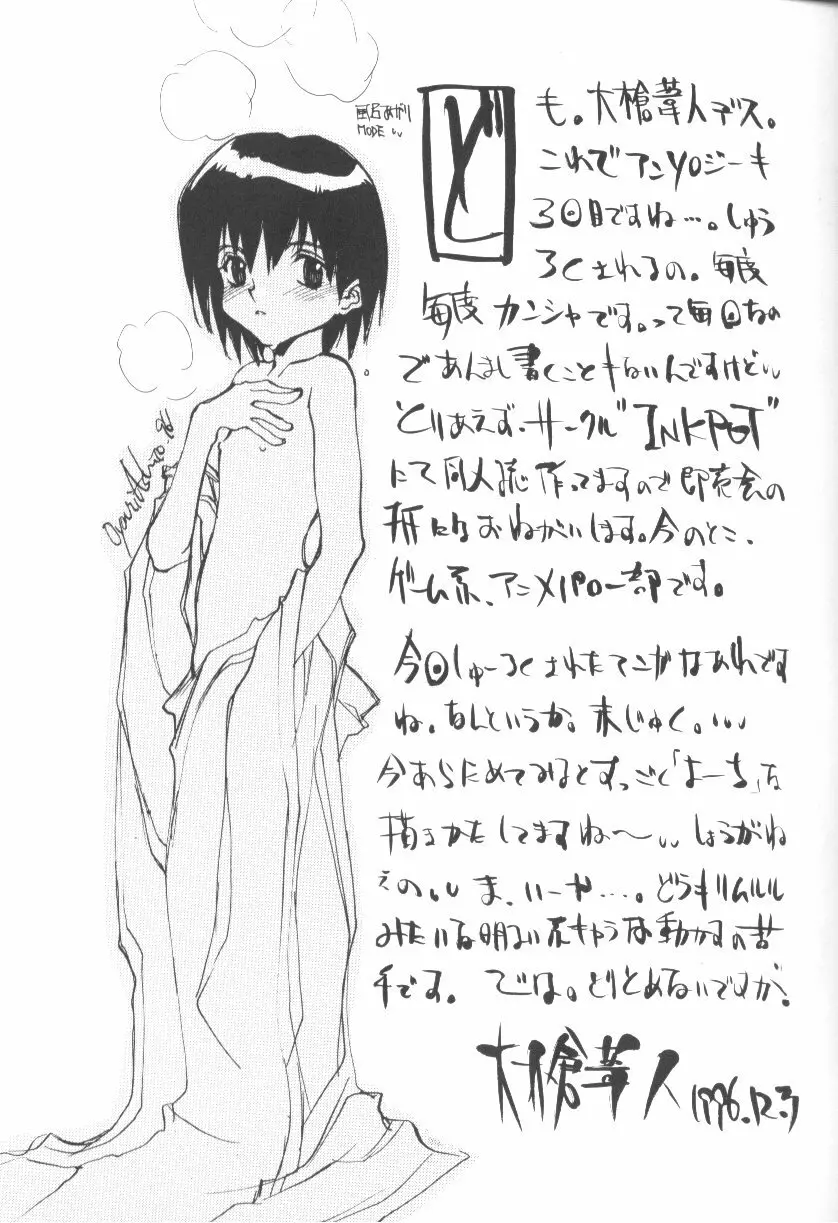 風呂あがり
MODE
ども。大槍葦人デス。
これでアンソロジーも
3回目ですね…。しゅう
ろくされるの。毎度
毎度カンシャです。って毎回なの
であんまし書くこともないんですけど
とりあえず・サークル"INKPOT"
にて同人誌作ってますので即売会の
折にはおねがいします。今のとこ、
ゲーム系、アニメパロ一部です。
今回しゅーろくされたてこがなあれです
ね。なんというか。未じゅく。
今あらためてみるとすっごく「まーち」な
描きかたしてますね〜 しょうがね
ぇの。ま、いーや…。どうもリムルル
みたいな明るい系キャラは動かすの苦
手です。では。とりとめないですが。
大槍葦人 1996.12.3
Oyari Ashito. 96